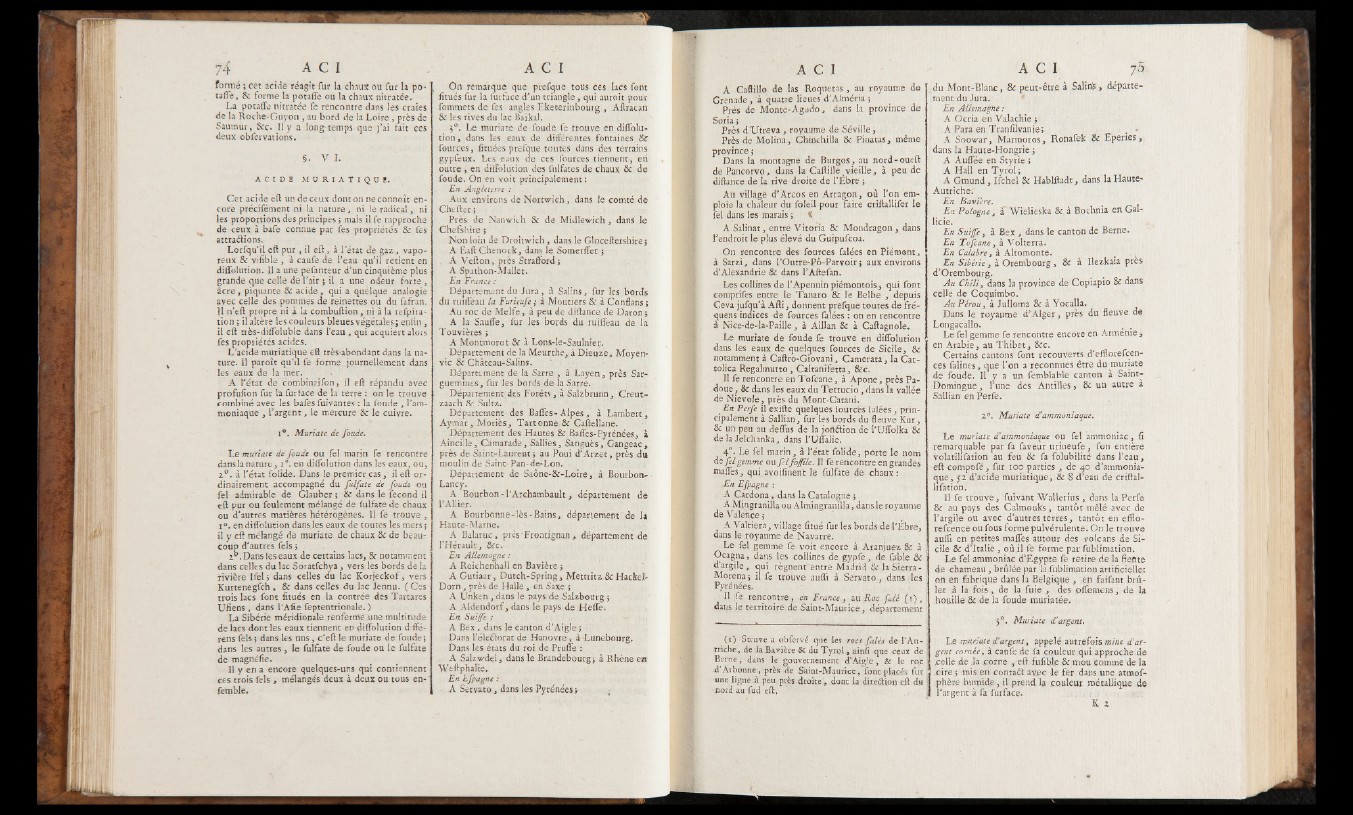 74 A C I
formé ; cet acide réagit sur la chaux ou sur la po-
tasse, & forme la potasse ou la chaux nitratée.
La potasse nitratée se rencontre dans les craies
de la Roche-Guyon, au bord de la Loire, près de
Saumur, &c. Il y a long-temps que j'ai fait ces
deux observations.
§. V I.
ACIDE MURIATIQUE.
Cet acide est un de ceux dont on ne connoît en-
core précisément ni la nature, ni le radical, ni
les proportions des principes ; mais il se rapproche
de ceux à base connue par ses propriétés & ses
attractions.
Lorsqu'il est pur, il est, à l'état de gaz, vapo-
reux & visible, à cause de l'eau qu'il retient en
dissolution. Il a une pesanteur d'un cinquième plus
grande que celle de l'air ; il a une odeur forte,
âcre, piquante & acide, qui a quelque analogie
avec celle des pommes de reinettes ou du safran.
Il n'est propre ni à la combustion, ni à la respira-
tion ; il altère les couleurs bleues végétales ; enfin,
il est très-dissoluble dans l'eau, qui acquiert alors
ses propriétés acides.
L'acide muriatique est très-abondant dans la na-
ture. Il paroît qu'il se forme journellement dans
les eaux de la mer.
A l'état de combinaison, il est répandu avec
profusion sur la surface de la terre : on le trouve
combiné avec les bases suivantes : la soude, l'am-
moniaque, l'argent, le mercure & le cuivre.
1°. Muriate de soude.
Le muriate de soude ou sel marin se rencontre
dans la nature, 1°. en dissolution dans les eaux, ou,
2°. à l'état solide. Dans le premier cas, il est or-
dinairement accompagné du sulfate de soude ou
sel admirable de Glauber ; & dans le second il
est pur ou seulement mélangé de sulfate de chaux
ou d'autres matières hétérogènes. Il se trouve,
1°. en dissolution dans les eaux de toutes les mers ;
il y est mélangé de muriate de chaux & de beau-
coup d'autres sels ;
2°. Dans les eaux de certains lacs, & notamment
dans celles du lac Soratschya, vers les bords de la
rivière Isel ; dans celles du lac Korjeckof, vers
Kurtenegsch, & dans celles du lac Jennu. (Ces
trois lacs sont situés en la contrée des Tartares
Usiens, dans l'Asie septentrionale.)
La Sibérie méridionale renferme une multitude
de lacs dont les eaux tiennent en dissolution diffé-
rens sels ; dans les uns, c'est le muriate de soude ;
dans les autres, le sulfate de soude ou le sulfate
de magnésie.
Il y en a encore quelques-uns qui contiennent
ces trois sels, mélangés deux à deux ou tous en-
semble.
A C I
On remarque que presque tous ces lacs sont
situés sur la surface d'un triangle, qui auroit pour
sommets de ses angles Eketerinbourg, Astracan
& les rives du lac Baïkal.
3°. Le muriate de soude se trouve en dissolu-
tion, dans les eaux de différentes fontaines &
sources, situées presque toutes dans des terrains
gypseux. Les eaux de ces sources tiennent, en
outre, en dissolution des sulfates de chaux & de
soude. On en voit principalement :
En Angleterre :
Aux environs de Nortwich, dans le comté de
Chester ;
Près de Nanwich & de Midlewich, dans le
Chesshire ;
Non loin de Droitwich, dans le Glocestershire ;
A East Chenock, dans le Somersset ;
A Veston, près Strafford ;
A Spathon-Mallet.
En France :
Département du Jura, à Salins, sur les bords
du ruisseau la Furieuse ; à Moutiers & à Conflans ;
Au roc de Melse, à peu de distance de Daron ;
A la Sausse, sur les bords du ruisseau de la
Touvières ;
A Montmorot & à Lons-le-Saulnier.
Département de la Meurthe, à Dieuze, Moyen-
vic & Château-Salins.
Département de la Sarre, à Layen, près Sar-
guemines, sur les bords de la Sarre.
Département des Forêts, à Salzbrunn, Creut-
zaach & Sultz.
Département des Basses-Alpes, à Lambert,
Aymar, Moriès, Tartonne & Castellane.
Département des Hautes & Basses-Pyrénées, à
Aincille, Camarade, Sallies, Saoguès, Gangeac,
près de Saint-Laurent ; au Poui d'Arzet, près du
moulin de Saint-Pan-de-Lon.
Département de Saône-&-Loire, à Bourbon-
Lancy.
A Bourbon-l'Archambault, département de
l'Allier.
A Bourbonne-lès-Bains, département de la
Haute-Marne.
A Balaruc, près Frontignan, département de
l'Hérault, &c.
En Allemagne :
A Reichenhall en Bavière ;
A Gutiaar, Dutch-Spring, Mettritz & Hackel-
Dorn, près de Halle, en Saxe ;
A Unken, dans le pays de Salzbourg ;
A Aldendorf, dans le pays de Hesse.
En Suisse :
A Bex, dans le canton d'Aigle ;
Dans l'électorat de Hanovre, à Lunebourg.
Dans les états du roi de Prusse :
A Salzwdel, dans le Brandebourg ; à Rhène en
Westphalie.
En Espagne :
A Servato, dans les Pyrénées ;
A C I
A Castillo de las Roquetas, au royaume de
Grenade, à quatre lieues d'Alméria ;
Près de Monte-Agudo, dans la province de
Soria ;
Près d'Utreva, royaume de Séville ;
Près de Molina, Chinchilla & Pinatas, même
province ;
Dans la montagne de Burgos, au nord-ouest
de Pancorvo, dans la Castille vieille, à peu de
distance de la rive droite de l'Ebre ;
Au village d'Arcos en Arragon, où l'on em-
ploie la chaleur du soleil pour faire cristalliser le
sel dans les marais ;
A Salinat, entre Vitoria & Mondragon, dans
l'endroit le plus élevé du Guipuscoa.
On rencontre des sources salées en Piémont,
à Sarzi, dans l'Outre-Pô-Parvoir ; aux environs
d'Alexandrie & dans l'Astesan.
Les collines de l'Apennin piémontois, qui sont
comprises entre le Tanaro & le Belbe, depuis
Ceva jusqu'à Asti, donnent presque toutes de fré-
quens indices de sources salées : on en rencontre
à Nice-de-la-Paille, à Aillan & à Castagnole.
Le muriate de soude se trouve en dissolution
dans les eaux de quelques sources de Sicile, &
notamment à Castro-Giovani, Camerata, la Cat-
tolica Regalmutto, Caltanisetta, &c.
Il se rencontre en Toscane, à Apone, près Pa-
doue, & dans les eaux du Tettucio, dans la vallée
de Nievole, près du Mont-Catani.
En Perse il existe quelques sources salées, prin-
cipalement à Sallian, sur les bords du fleuve Kur,
& un peu au dessus de la jonction de l'Ussolka &
de la Jelchanka, dans l'Ussalie.
4°. Le sel marin, à l'état solide, porte le nom
de sel gemme ou sel fossile. Il se rencontre en grandes
masses, qui avoisinent le sulfate de chaux :
En Espagne :
A Cardona, dans la Catalogne ;
A Mingranilla ou Almingranilla, dans le royaume
de Valence ;
A Valtiera, village situé sur les bords de l'Ebre,
dans le royaume de Navarre.
Le sel gemme se voit encore à Aranjuez & à
Ocagna, dans les collines de gypse, de sable &
d'argile, qui règnent entre Madrid & la Sierra-
Morena ; il se trouve aussi à Servato, dans les
Pyrénées.
Il se rencontre, en France, au Roc salé (1),
dans le territoire de Saint-Maurice, département
(1) Struve a observé que les rocs salés de l'Au-
triche, de la Bavière & du Tyrol, ainsi que ceux de
Berne, dans le gouvernement d'Aigle, & le roc
d'Arbonne, près de Saint-Maurice, sont placés sur
une ligne à peu près droite, dont la direction est du
nord au sud est.
A C I 75
du Mont-Blanc, & peut-être à Salins, départe-
ment du Jura.
En Allemagne :
A Ocria en Valachie ;
A Para en Transilvanie ;
A Soowar, Marmoros, Ronasek & Eperies,
dans la Haute-Hongrie ;
A Aussée en Styrie ;
A Hall en Tyrol ;
A Gmund, Ischel & Hablstadt, dans la Haute-
Autriche.
En Bavière.
En Pologne, à Wielieska & à Bochnia en Gal-
licie.
En Suisse, à Bex, dans le canton de Berne.
En Toscane, à Volterra.
En Calabre, à Altomonte.
En Sibérie, à Orembourg, & à Ilezkaïa près
d'Orembourg.
Au Chili, dans la province de Copiapio & dans
celle de Coquimbo.
Au Pérou, à Julloma & à Yocalla.
Dans le royaume d'Alger, près du fleuve de
Longacallo.
Le sel gemme se rencontre encore en Arménie,
en Arabie, au Thibet, &c.
Certains cantons sont recouverts d'efflorescen-
ces salines, que l'on a reconnues être du muriate
de soude. Il y a un semblable canton à Saint-
Domingue, l'une des Antilles, & un autre à
Sallian en Perse.
2°. Muriate d'ammoniaque.
Le muriate d'ammoniaque ou sel ammoniac, si
remarquable par sa saveur urineuse, son entière
volatilisation au feu & sa solubilité dans l'eau,
est composé, sur 100 parties, de 40 d'ammonia-
que, 52 d'acide muriatique, & 8 d'eau de cristal-
lisation.
Il se trouve, suivant Wallerius, dans la Perse
& au pays des Calmouks, tantôt mêlé avec de
l'argile ou avec d'autres terres, tantôt en efflo-
rescence ou sous forme pulvérulente. On le trouve
aussi en petites masses autour des volcans de Si-
cile & d'Italie, où il se forme par sublimation.
Le sel ammoniac d'Egypte se retire de la fiente
de chameau, brûlée par la sublimation artificielle :
on en fabrique dans la Belgique, en faisant brû-
ler à la fois, de la suie, des ossemens, de la
houille & de la soude muriatée.
3°. Muriate d'argent.
Le muriate d'argent, appelé autrefois mine d'ar-
gent cornée, à cause de sa couleur qui approche de
celle de la corne, est fusible & mou comme de la
cire ; mis en contact avec le fer dans une atmos-
phère humide, il prend la couleur métallique de
l'argent à sa surface.
K 2